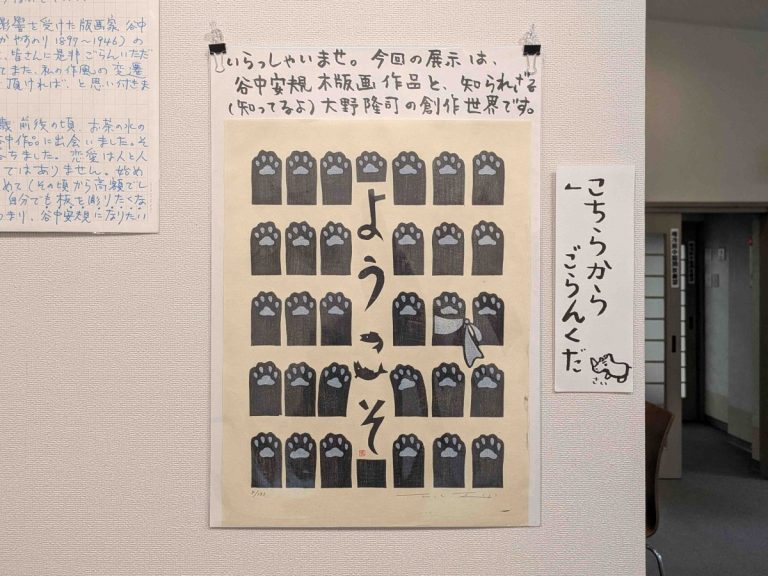 影響を受けた版画家 谷中
かやすのり 1897〜1946)の
、皆さんに是非ごらんいただ
てまた、私の作風の変遷
頂ければ、と思い付きま
歳前後の頃、お茶の水の
中作品に出会いました。そ
ちました。恋愛は人と人
ではありません。始め
めて(その頃から高額でし
自分でも板を彫りたくな
まり、谷中安規になりたい
いらっしゃいませ。今回の展示は、
谷中安規木版画作品と、知られざる
(知ってるよ)大野隆司の創作世界です。
ようこそ
こちらから
ごらんくだ
さい